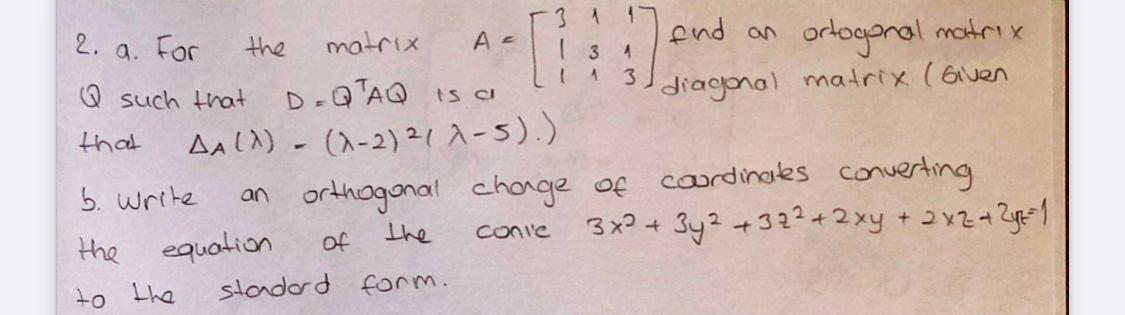 2. a. For the matrix A = [ 3 1 1 ] find an ortogonal matrix
[ 1 3 1 ]
[ 1 1 3 ]
Q such that D = QᵀAQ is a diagonal matrix. (Given
that Δ_A(λ) = (λ-2)²(λ-5).)
b. Write an orthogonal change of coordinates converting
the equation of the conic 3x² + 3y² + 3z² + 2xy + 2xz + 2yz = 1
to the standard form.